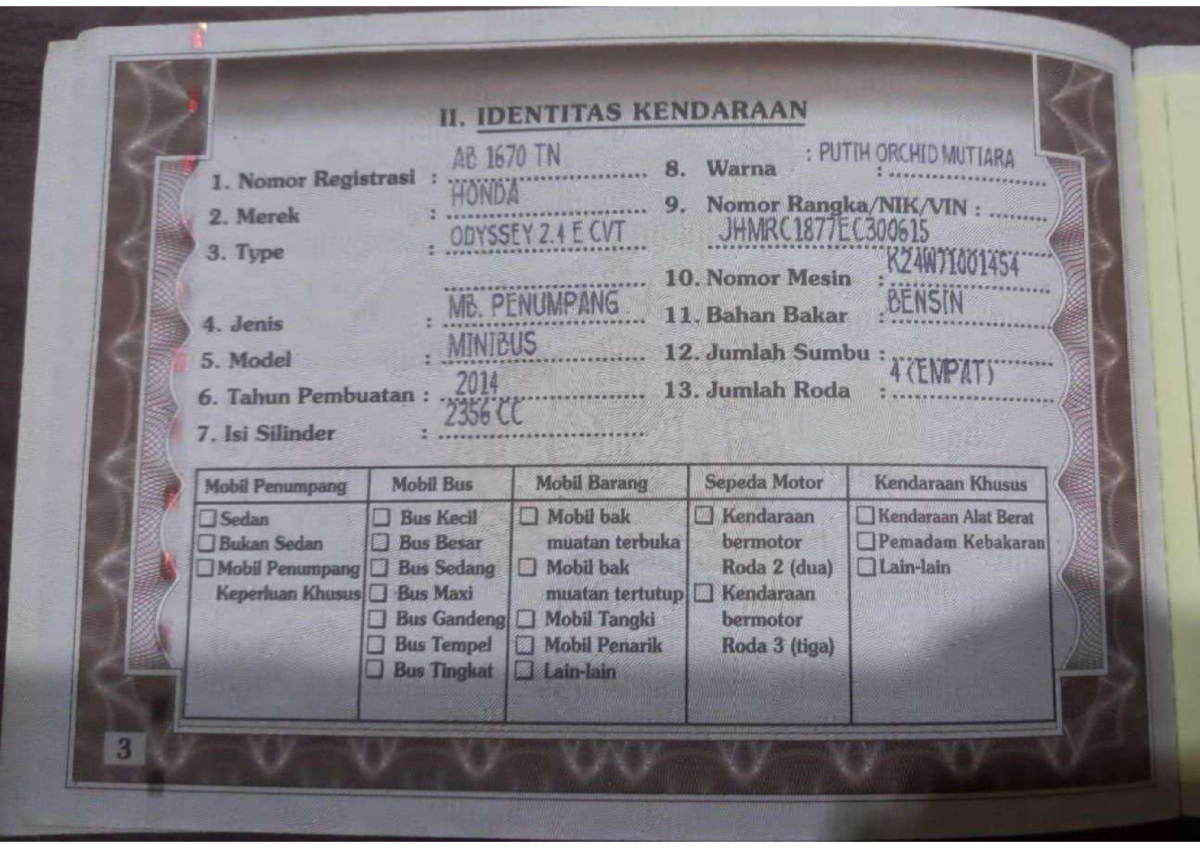 II. IDENTITAS KENDARAAN
1. Nomor Registrasi : AB 1670 TN
2. Merek : HONDA
3. Type : ODYSSEY 2.4 E CVT
4. Jenis : MB. PENUMPANG
5. Model : MINIBUS
6. Tahun Pembuatan : 2014
7. Isi Silinder : 2356 CC
8. Warna : PUTIH ORCHID MUTIARA
9. Nomor Rangka/NIK/VIN :
JHMRC1877EC300615
10. Nomor Mesin : K24W71001454
11. Bahan Bakar : BENSIN
12. Jumlah Sumbu :
13. Jumlah Roda : 4 (EMPAT)
Mobil Penumpang
☐ Sedan
☐ Bukan Sedan
☐ Mobil Penumpang
Keperluan Khusus
Mobil Bus
☐ Bus Kecil
☐ Bus Besar
☐ Bus Sedang
☐ Bus Maxi
☐ Bus Gandeng
☐ Bus Tempel
☐ Bus Tingkat
Mobil Barang
☐ Mobil bak
muatan terbuka
☐ Mobil bak
muatan tertutup
☐ Mobil Tangki
☐ Mobil Penarik
☐ Lain-lain
Sepeda Motor
☐ Kendaraan
bermotor
Roda 2 (dua)
☐ Kendaraan
bermotor
Roda 3 (tiga)
Kendaraan Khusus
☐ Kendaraan Alat Berat
☐ Pemadam Kebakaran
☐ Lain-lain
3